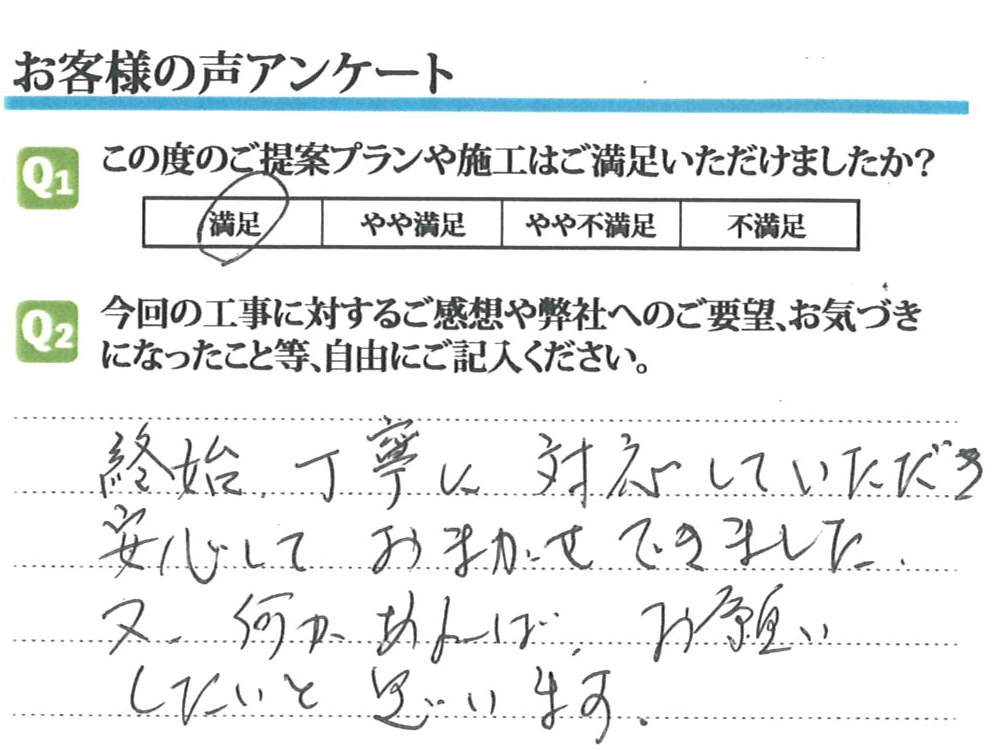 お客様の声アンケート
Q1 この度のご提案プランや施工はご満足いただけましたか?
満足 やや満足 やや不満足 不満足
Q2 今回の工事に対するご感想や弊社へのご要望、お気づき
になったこと等、自由にご記入ください。
終始、丁寧に対応していただき
安心しておまかせできました.
又、何かあれば、お願い
したいと思います.